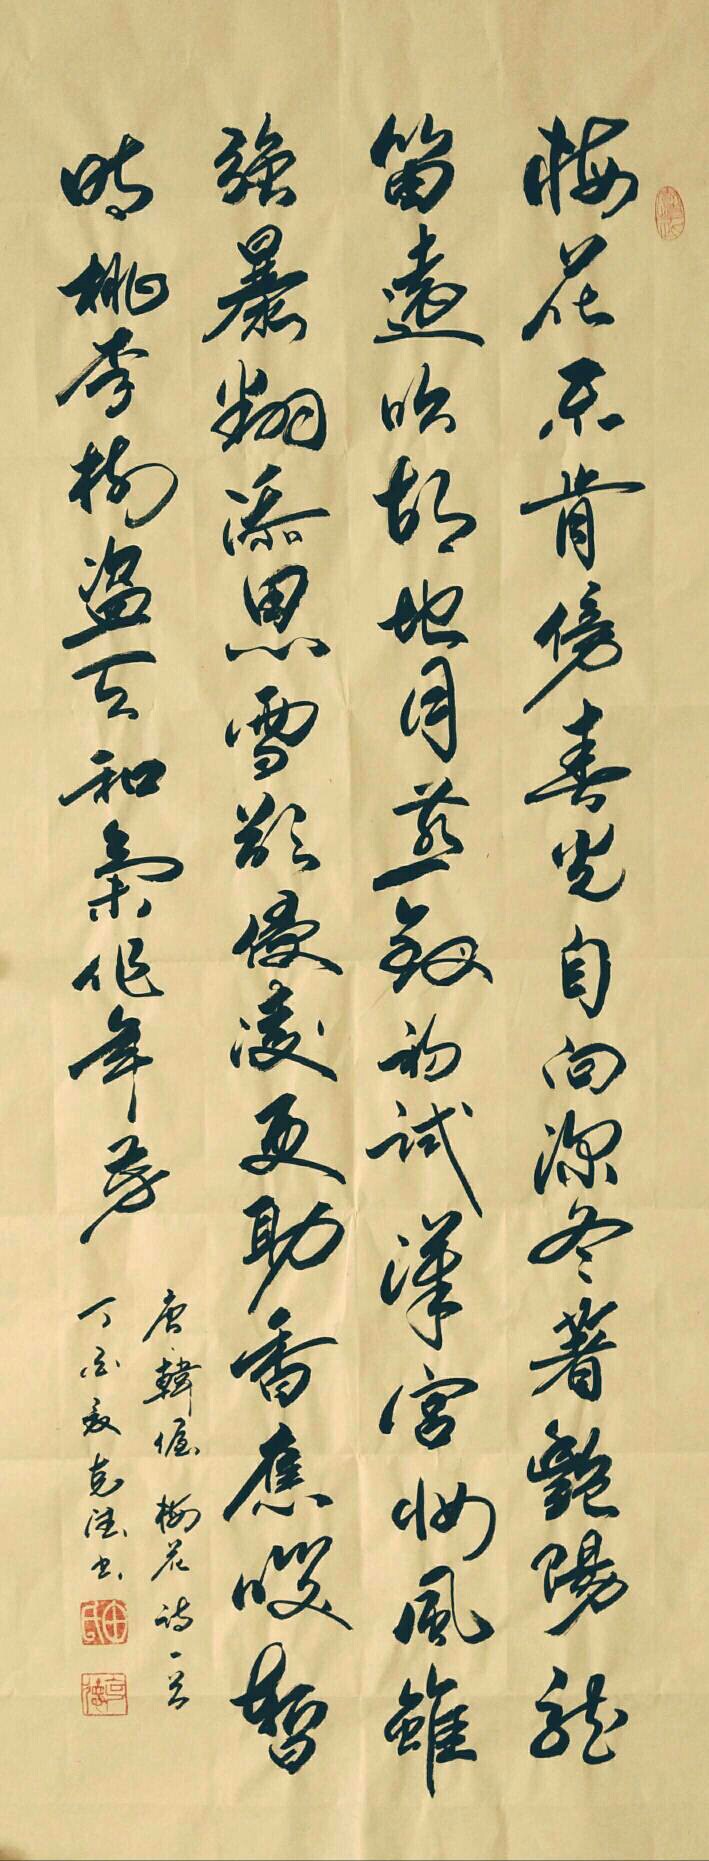 梅花不肯傍春光自向深冬著艷陽龍
笛遠吹胡地月燕釵初試漢宮妝風雖
強暴翻添思雪欲侵凌更助香應咲暫
時桃李樹盜天和氣作年芳
唐韓偓梅花詩一首
丁酉夏克德書